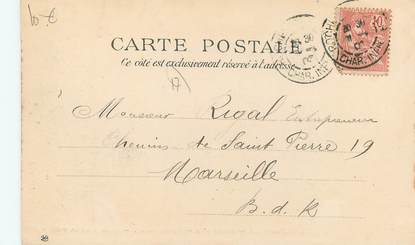 10 €
CARTE POSTALE
Ce côté est exclusivement réservé à l'adresse
Monsieur Rival Entrepreneur
Chemin de Saint Pierre 19
Marseille
B. d. R